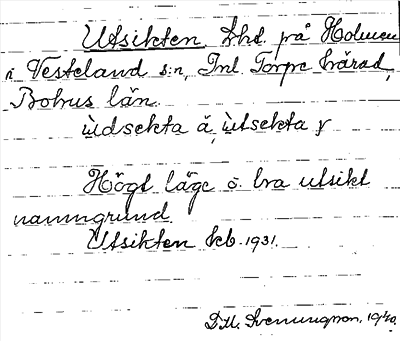 Utsikten, lht på Holmen
i Vesteland s:n, Inl. Torpe härad,
Bohus län.
ùdsekta ä, ùtsekta y
Högt läge o. bra utsikt
namngrund.
Utsikten kb. 1931.
D.tl. Svenungson. 1940.